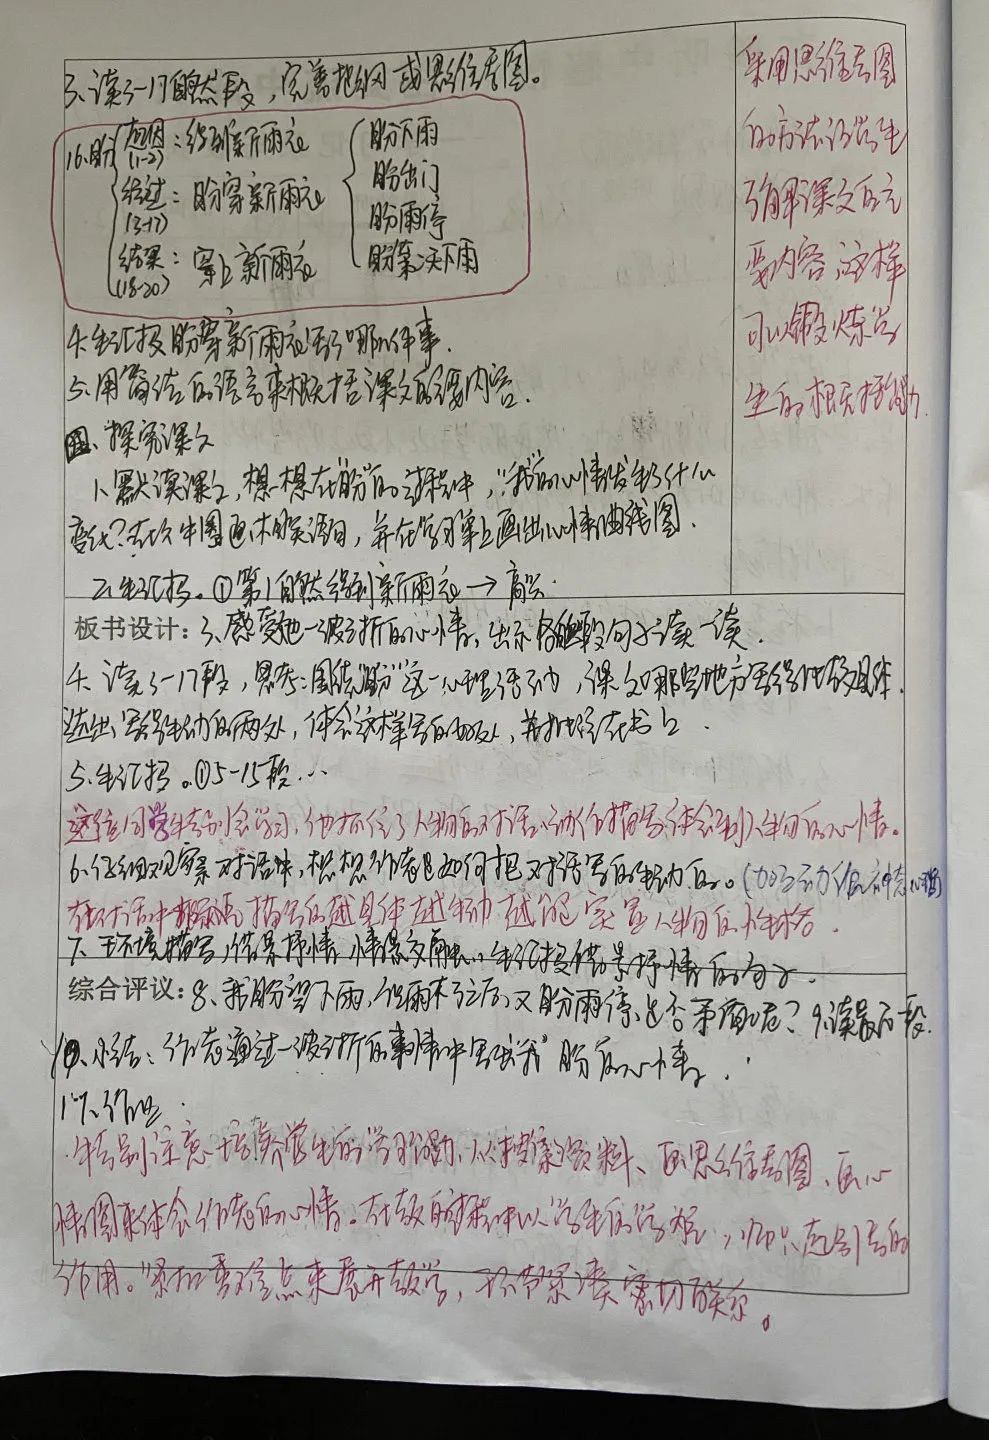 3、读3-17自然段，完善提纲或思维导图。
16.盼
起因：得到新雨衣
(1-2)
经过：盼穿新雨衣
(3-17)
结果：穿上新雨衣
(18-20)
盼下雨
盼出门
盼雨停
盼第二天下雨
4.生汇报盼穿新雨衣写了哪几件事.
5、用简洁的语言来概括课文的主要内容.
四、探究课文
1、默读课文，想一想在"盼"的过程中，"我"的心情发生了什么
变化？在文中圈画体现语句，并在学习单上画出心情曲线图.
2、生汇报。①第1自然段得到新雨衣→高兴
板书设计：3、感受她一波三折的心情，出示各自然段句子读一读.
4、读3-17段，思考：围绕"盼"这一心理活动，课文哪些地方写得比较具体.
选出写得生动的两处，体会这样写的好处，并批注在书上.
5、生汇报。①5-15段…
这位同学特别会学习，他抓住了人物的对话、动作描写体会到人物的心情。
6、仔细观察对话中，想想作者是如何把对话写的生动的。(加了动作、神态、心理)
在对话中描写的越具体越生动越能突显人物的性格.
7、环境描写，借景抒情，情景交融，生汇报借景抒情的句子.
综合评议：8、我盼望下雨，但雨来了之后又盼雨停，是否矛盾呢？9、读最后一段.
10、小结：作者通过一波三折的事情中写出"我"盼的心情.
作业.
特别注意培养学生的学习能力，从搜集资料、画思维导图、画心
情图来体会作者的心情。在教的过程中以学生的学为，师只起引导的
作用。紧扣重难点来展开教学，环节紧凑密切联系。
采用思维导图
的方法让学生
了解课文的主
要内容，这样
可以锻炼学
生的概括能力.